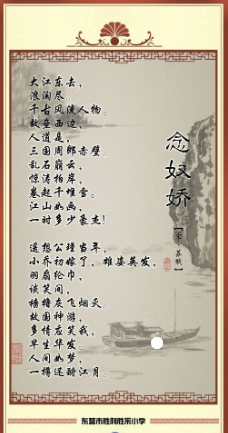 念奴娇
【宋·苏轼】
大江东去，
浪淘尽
千古风流人物。
故垒西边，
人道是，
三国周郎赤壁。
乱石崩云，
惊涛拍岸，
卷起千堆雪。
江山如画，
一时多少豪杰！
遥想公瑾当年，
小乔初嫁了，雄姿英发，
羽扇纶巾，
谈笑间，
樯橹灰飞烟灭。
故国神游，
多情应笑我，
早生华发，
人间如梦，
一樽还酹江月。
东营市胜利胜采小学